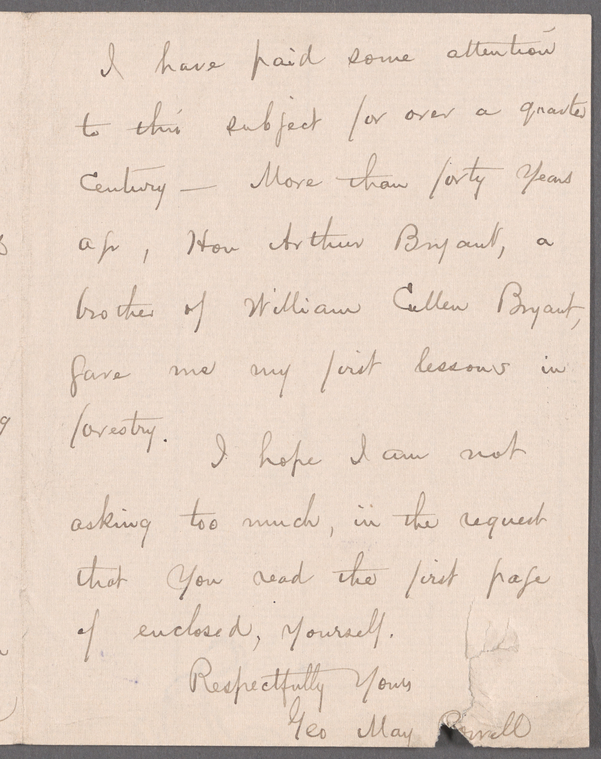 I have paid some attention
to this subject for over a quarter
Century — More than forty Years
ago, Hon Arthur Bryant, a
brother of William Cullen Bryant,
gave me my first lessons in
forestry.
I hope I am not
asking too much, in the request
that You read the first page
of enclosed, Yourself.
Respectfully Yours
Geo May Powell